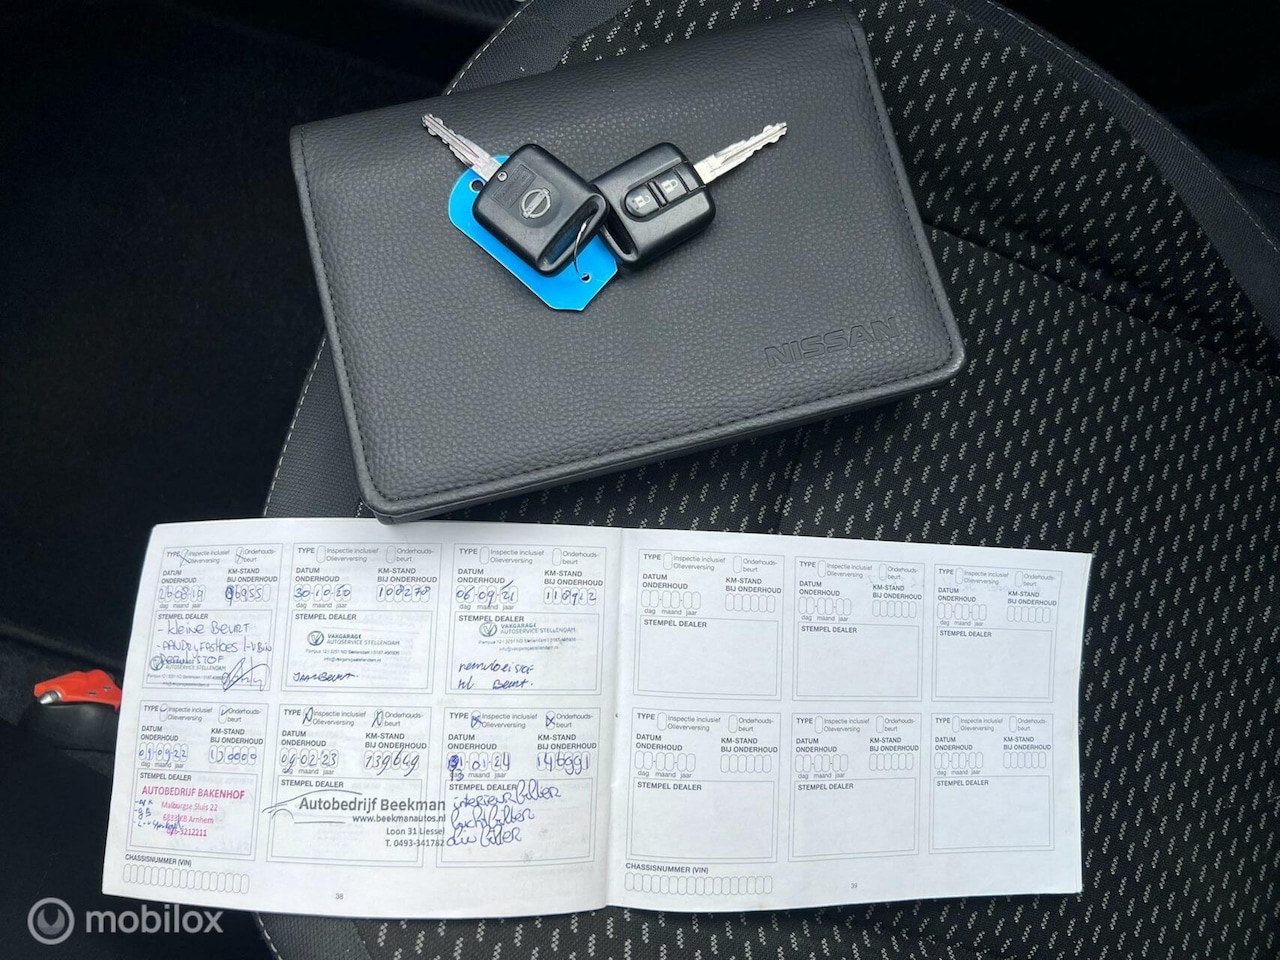 NISSAN
TYPE Inspectie inclusief Olieverversing Onderhouds-beurt
DATUM ONDERHOUD KM-STAND BIJ ONDERHOUD
26 08 19 96955
dag maand jaar
STEMPEL DEALER
- Kleine BEURT
AUTOSERVICE STELLENDAM
TYPE Inspectie inclusief Olieverversing Onderhouds-beurt
DATUM ONDERHOUD KM-STAND BIJ ONDERHOUD
30 10 20 108278
dag maand jaar
STEMPEL DEALER
VAKGARAGE
AUTOSERVICE STELLENDAM
info@vakgaragestellendam.nl
JAARBEURT
TYPE Inspectie inclusief Olieverversing Onderhouds-beurt
DATUM ONDERHOUD KM-STAND BIJ ONDERHOUD
06 09 21 118912
dag maand jaar
STEMPEL DEALER
VAKGARAGE
AUTOSERVICE STELLENDAM
info@vakgaragestellendam.nl
remvloeistof
kl Beurt
TYPE Inspectie inclusief Olieverversing Onderhouds-beurt
DATUM ONDERHOUD KM-STAND BIJ ONDERHOUD
dag maand jaar
STEMPEL DEALER
TYPE Inspectie inclusief Olieverversing Onderhouds-beurt
DATUM ONDERHOUD KM-STAND BIJ ONDERHOUD
dag maand jaar
STEMPEL DEALER
TYPE Inspectie inclusief Olieverversing Onderhouds-beurt
DATUM ONDERHOUD KM-STAND BIJ ONDERHOUD
dag maand jaar
STEMPEL DEALER
TYPE Inspectie inclusief Olieverversing Onderhouds-beurt
DATUM ONDERHOUD KM-STAND BIJ ONDERHOUD
09 09 22
dag maand jaar
STEMPEL DEALER
AUTOBEDRIJF BAKENHOF
Malburgse Sluis 22
Arnhem
026-3212211
TYPE Inspectie inclusief Olieverversing Onderhouds-beurt
DATUM ONDERHOUD KM-STAND BIJ ONDERHOUD
09 02 23 139649
dag maand jaar
STEMPEL DEALER
Autobedrijf Beekman
www.beekmanautos.nl
Loon 31 Liessel
T. 0493-341782
TYPE Inspectie inclusief Olieverversing Onderhouds-beurt
DATUM ONDERHOUD KM-STAND BIJ ONDERHOUD
01 24 146991
dag maand jaar
STEMPEL DEALER
interieurfilter
luchtfilter
oliefilter
TYPE Inspectie inclusief Olieverversing Onderhouds-beurt
DATUM ONDERHOUD KM-STAND BIJ ONDERHOUD
dag maand jaar
STEMPEL DEALER
TYPE Inspectie inclusief Olieverversing Onderhouds-beurt
DATUM ONDERHOUD KM-STAND BIJ ONDERHOUD
dag maand jaar
STEMPEL DEALER
TYPE Inspectie inclusief Olieverversing Onderhouds-beurt
DATUM ONDERHOUD KM-STAND BIJ ONDERHOUD
dag maand jaar
STEMPEL DEALER
CHASSISNUMMER (VIN)
38
CHASSISNUMMER (VIN)
39
mobilox